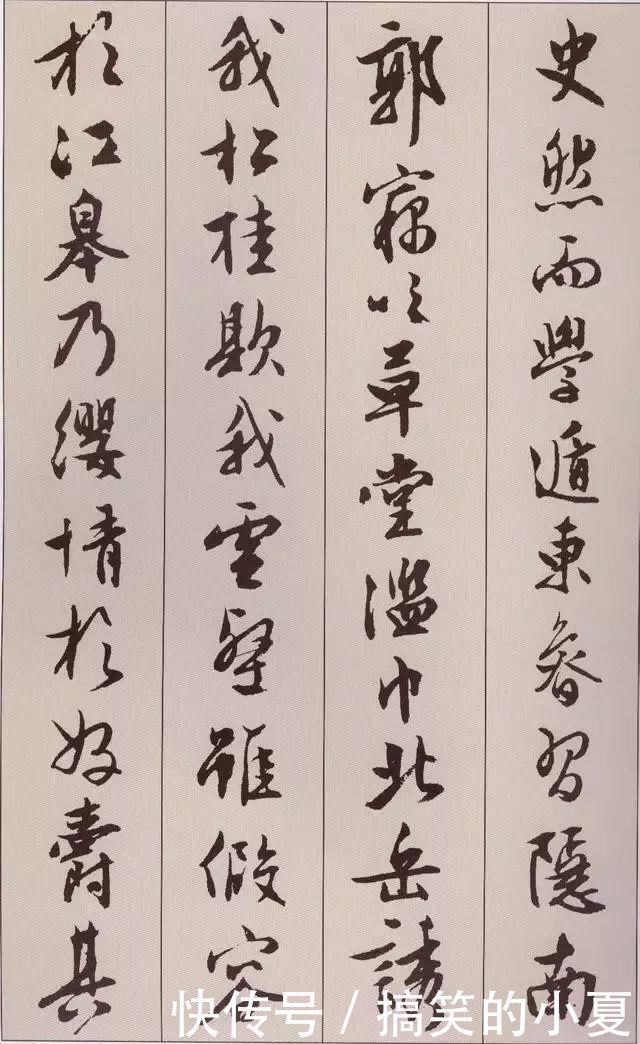 史然而學遁東魯習隱南
郭竊吹草堂濫巾北岳誘
我松桂欺我雲壑雖假容
於江皋乃纓情於好爵其
快传号 / 搞笑的小夏